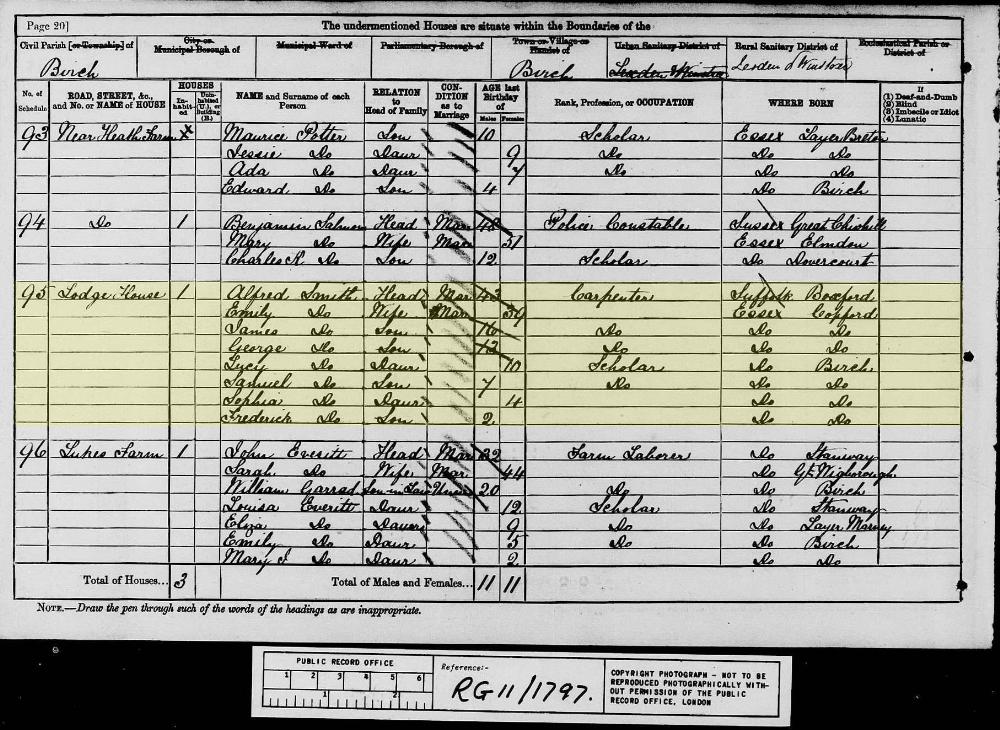 Page 20]
The undermentioned Houses are situate within the Boundaries of the
Civil Parish [or Township] of
City or Municipal Borough of
Municipal Ward of
Parliamentary Borough of
Town or Village or Hamlet of
Urban Sanitary District of
Rural Sanitary District of
Ecclesiastical Parish or District of
Birch Birch Lexden & Winstree Lexden & Winstree
No. of Schedule
ROAD, STREET, &c., and No. or NAME of HOUSE
HOUSES
In-habit-ed
Unin-habited (U.), or Building (B.)
NAME and Surname of each Person
RELATION to Head of Family
CON-DITION as to Marriage
AGE last Birthday of
Males Females
Rank, Profession, or OCCUPATION
WHERE BORN
If
(1) Deaf-and-Dumb
(2) Blind
(3) Imbecile or Idiot
(4) Lunatic
93 Near Heath Farm X Maurice Potter Son 10 Scholar Essex Layer Breton
Jessie Do Daur 9 Do Do Do
Ada Do Daur 7 Do Do Do
Edward Do Son 4 Do Birch
94 Do 1 Benjamin Salmon Head Mar Police Constable Sussex Great Chishill
Mary Do Wife Mar 51 Essex Elmdon
Charles K Do Son 12 Scholar Do Dovercourt
95 Lodge House 1 Alfred Smith Head Mar 43 Carpenter Suffolk Boxford
Emily Do Wife Mar 39 Essex Copford
James Do Son 16 Do Do Do
George Do Son 13 Do Do Do
Lucy Do Daur 10 Scholar Do Birch
Samuel Do Son 7 Do Do Do
Sophia Do Daur 4 Do Do
Frederick Do Son 2 Do Do
96 Lukes Farm 1 John Everitt Head Mar 32 Farm Laborer Do Stanway
Sarah Do Wife Mar 44 Do Gt. Wigborough
William Garrad Son-in-Law 20 Do Do Birch
Louisa Everitt Daur 12 Scholar Do Stanway
Eliza Do Daur 9 Do Do Layer Marney
Emily Do Daur 5 Do Do Birch
Mary J Do Daur 2 Do Do
Total of Houses... 3 Total of Males and Females... 11 11
NOTE.—Draw the pen through such of the words of the headings as are inappropriate.
PUBLIC RECORD OFFICE
1 2 3 4 5 6
1 2
Reference:-
RG 11/1797.
COPYRIGHT PHOTOGRAPH - NOT TO BE
REPRODUCED PHOTOGRAPHICALLY WITH-
OUT PERMISSION OF THE PUBLIC
RECORD OFFICE, LONDON